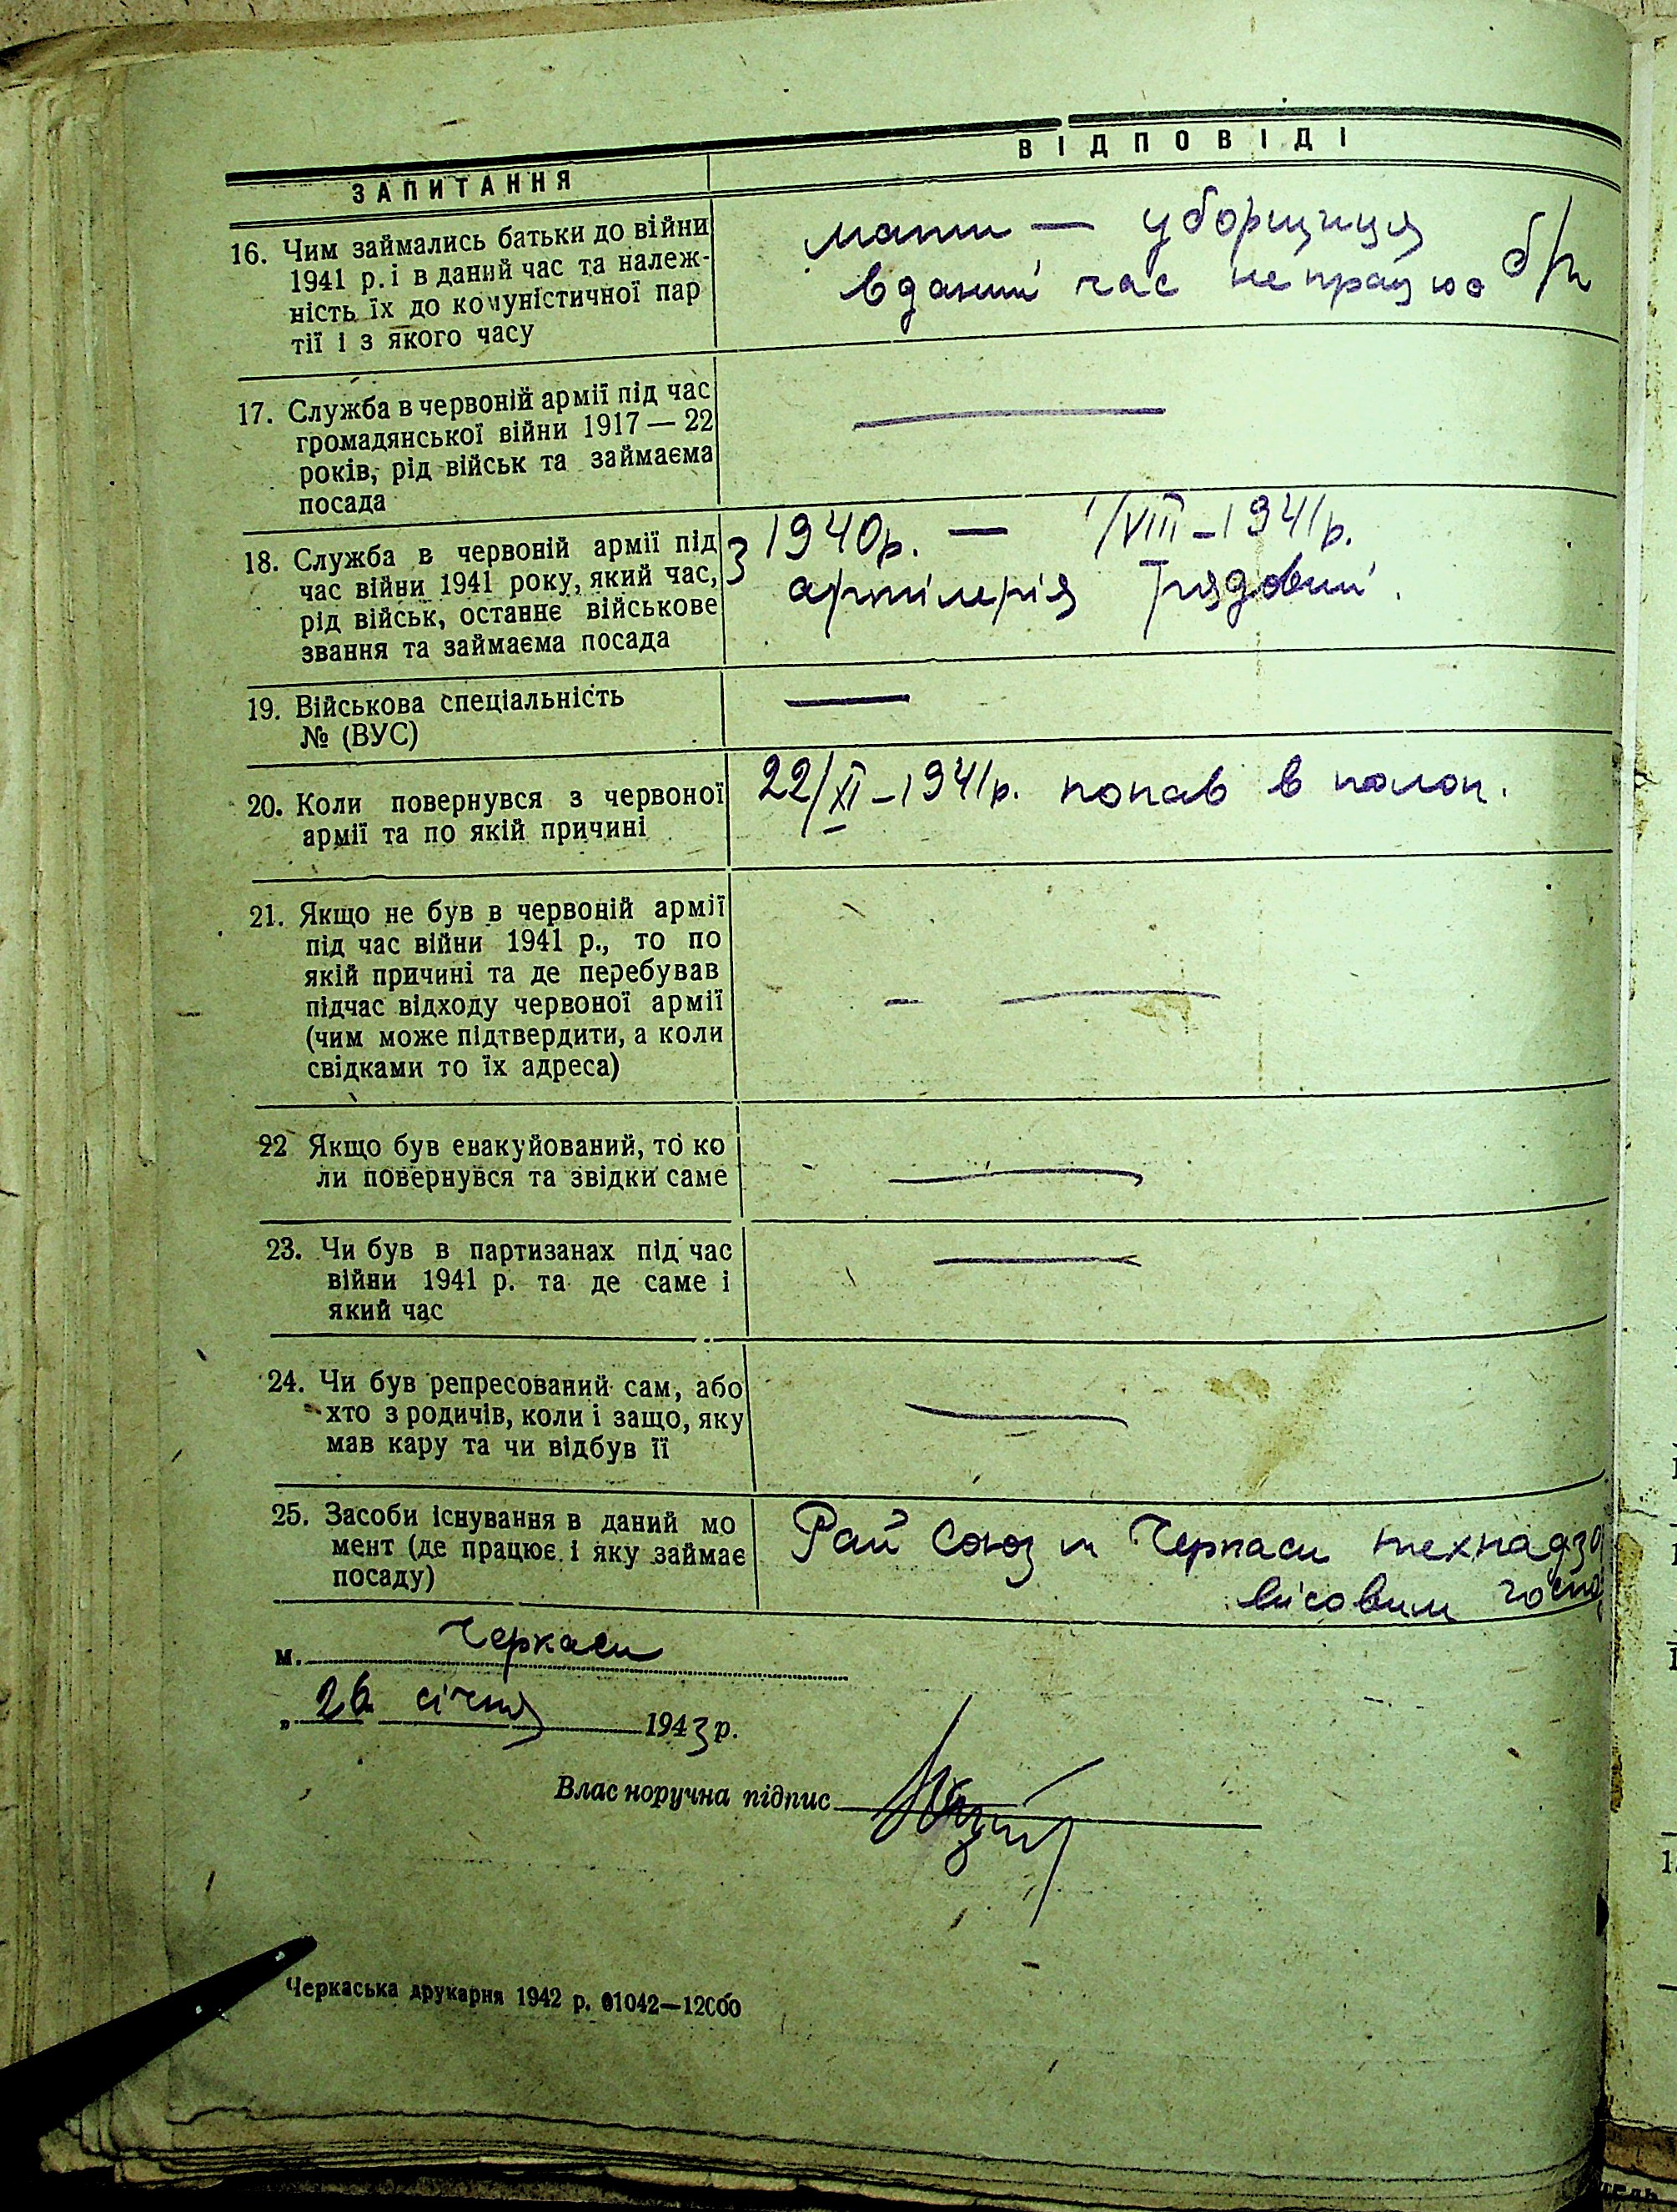 ЗАПИТАННЯ
ВІДПОВІДІ
16. Чим займались батьки до війни
1941 р. і в даний час та належ-
ність їх до комуністичної пар
тії і з якого часу
мати — уборщиця
в даний час не працює б/п
17. Служба в червоній армії під час
громадянської війни 1917 — 22
років, рід військ та займаєма
посада
18. Служба в червоній армії під
час війни 1941 року, який час,
рід військ, останнє військове
звання та займаєма посада
з 1940р. — 1/VIII-1941р.
артілерія рядовий.
19. Військова спеціальність
№ (ВУС)
20. Коли повернувся з червоної
армії та по якій причині
22/XI-1941р. попав в полон.
21. Якщо не був в червоній армії
під час війни 1941 р., то по
якій причині та де перебував
підчас відходу червоної армії
(чим може підтвердити, а коли
свідками то їх адреса)
22 Якщо був евакуйований, то ко
ли повернувся та звідки саме
23. Чи був в партизанах під час
війни 1941 р. та де саме і
який час
24. Чи був репресований сам, або
хто з родичів, коли і защо, яку
мав кару та чи відбув її
25. Засоби існування в даний мо
мент (де працює і яку займає
посаду)
Рай Союз м Черкаси технадзо
лісовим госпо
м. Черкаси
„ 26 січня 1943 р.
Влас норучна підпис
Черкаська друкарня 1942 р. 01042—12000